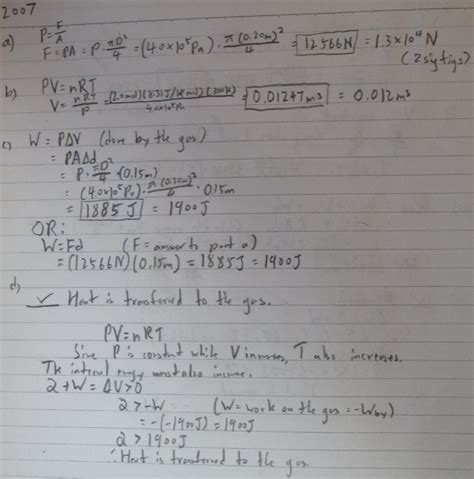 2007
a) P = F/A
F = PA = P · πD²/4 = (4.0×10⁵ Pa) · π(0.20m)²/4 = 12566N = 1.3×10⁴ N
(2 sig figs)
b) PV = nRT
V = nRT/P = = 0.01247m³ = 0.012m³
c) W = PΔV (done by the gas)
= PAΔd
= P · πD²/4 (0.15m)
= (4.0×10⁵ Pa) · π(0.20m)²/4 · 0.15m
= 1885 J = 1900J
OR:
W = Fd (F = answer to part a)
= (12566N)(0.15m) = 1885J = 1900J
d) ✓ Heat is transferred to the gas.
PV = nRT
Since P is constant while V increases, T also increases.
The internal energy must also increase.
Q + W = ΔU > 0
Q > -W (W = work on the gas = -W)
= -(-1900J) = 1900J
Q > 1900J
∴ Heat is transferred to the gas.